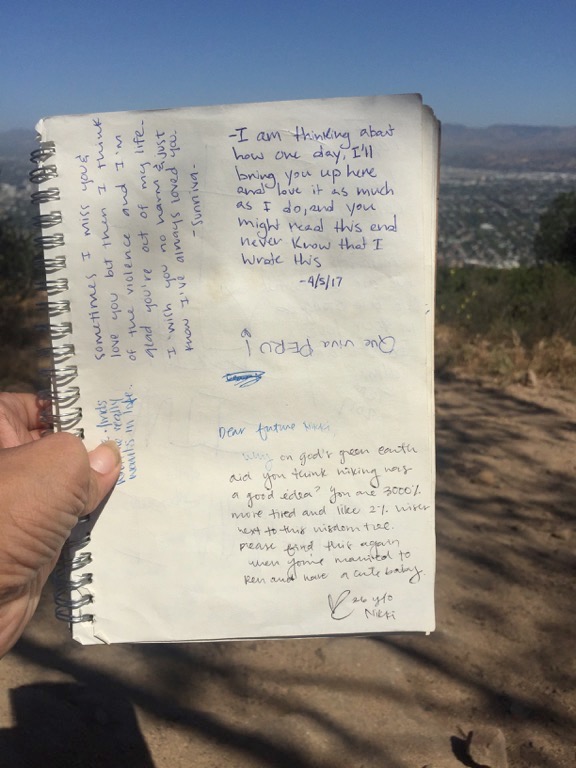 sometimes I miss you &
love you but then I think
of the violence and I'm
glad you're out of my life-
I wish you no harm & just
know I've always loved you.
-Sunniva-
finds
really
wants in life.
-I am thinking about
how one day, I'll
bring you up here
and love it as much
as I do, and you
might read this and
never know that I
wrote this
-4/5/17
Que viva PERU!
Dear future Nikki
why on god's green earth
did you think hiking was
a good idea? You are 3000%
more tired and like 2% wiser
next to this wisdom tree.
Please find this again
when you're married to
Ken and have a cute baby.
26 y/o
Nikki